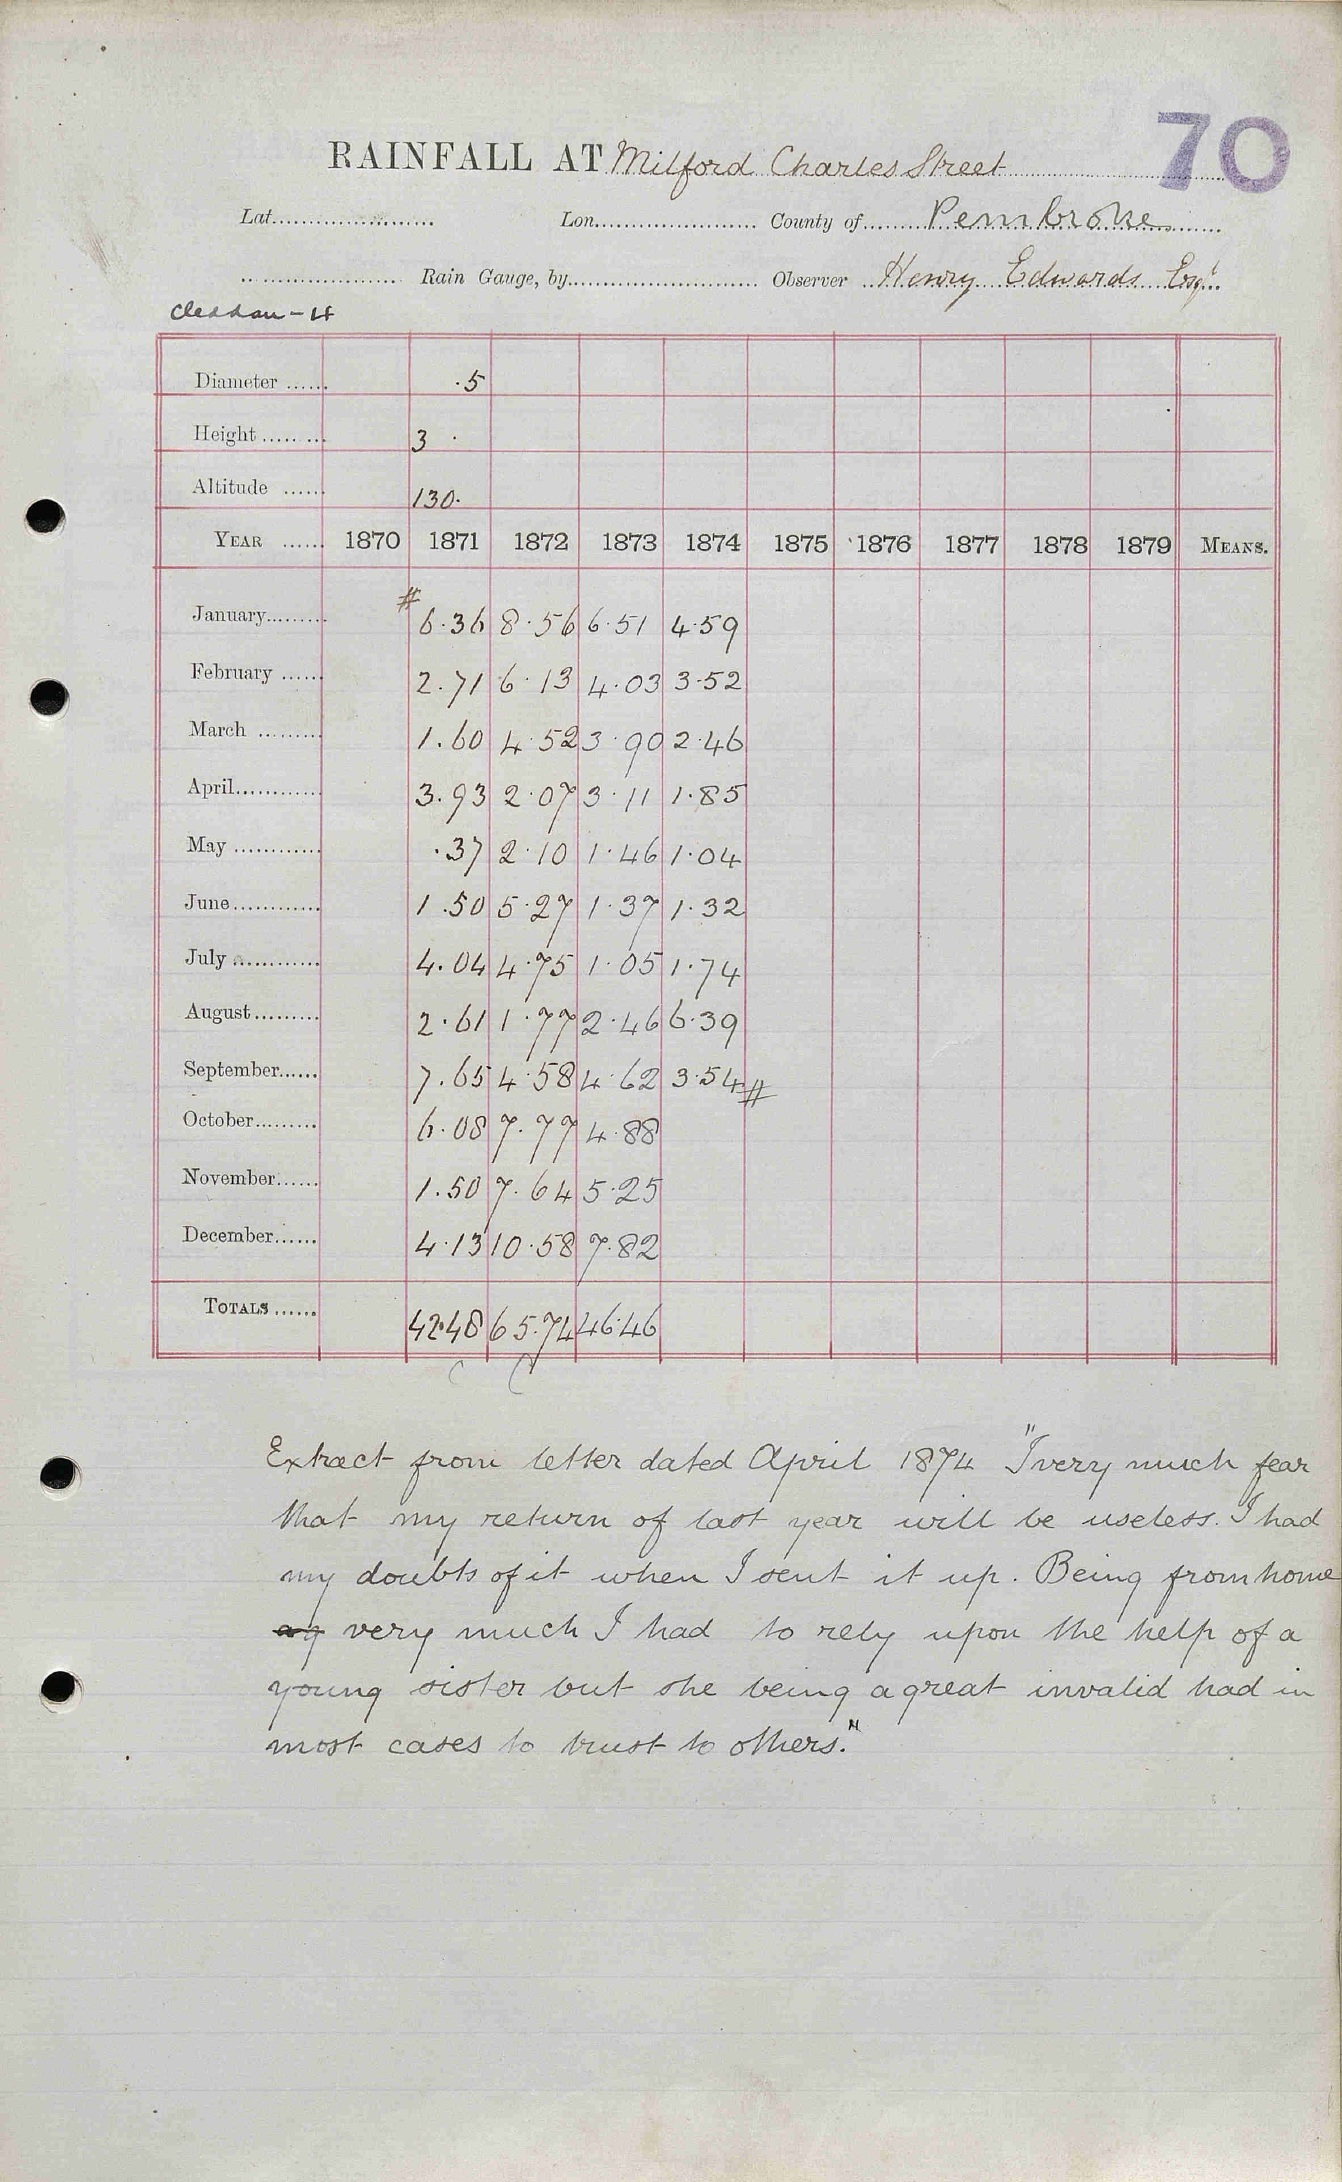 70
RAINFALL AT Milford Charles Street
Lat...................... Lon....................... County of Pembroke
...................... Rain Gauge, by........................... Observer Henry Edwards Esqr
Cleddau - 4
Diameter ...... .5
Height ........ 3 .
Altitude ...... 130.
YEAR ...... 1870 1871 1872 1873 1874 1875 1876 1877 1878 1879 MEANS.
January......... # 6.36 8.56 6.51 4.59
February ...... 2.71 6.13 4.03 3.52
March ......... 1.60 4.52 3.90 2.46
April............ 3.93 2.07 3.11 1.85
May ............ .37 2.10 1.46 1.04
June............ 1.50 5.27 1.37 1.32
July ............ 4.04 4.75 1.05 1.74
August......... 2.61 1.77 2.46 6.39
September...... 7.65 4.58 4.62 3.54 #
October......... 6.08 7.77 4.88
November...... 1.50 7.64 5.25
December...... 4.13 10.58 7.82
TOTALS ...... 42.48 65.74 46.46
Extract from letter dated April 1874 "I very much fear
that my return of last year will be useless. I had
my doubts of it when I sent it up. Being from home
very much I had to rely upon the help of a
young sister but she being a great invalid had in
most cases to trust to others."